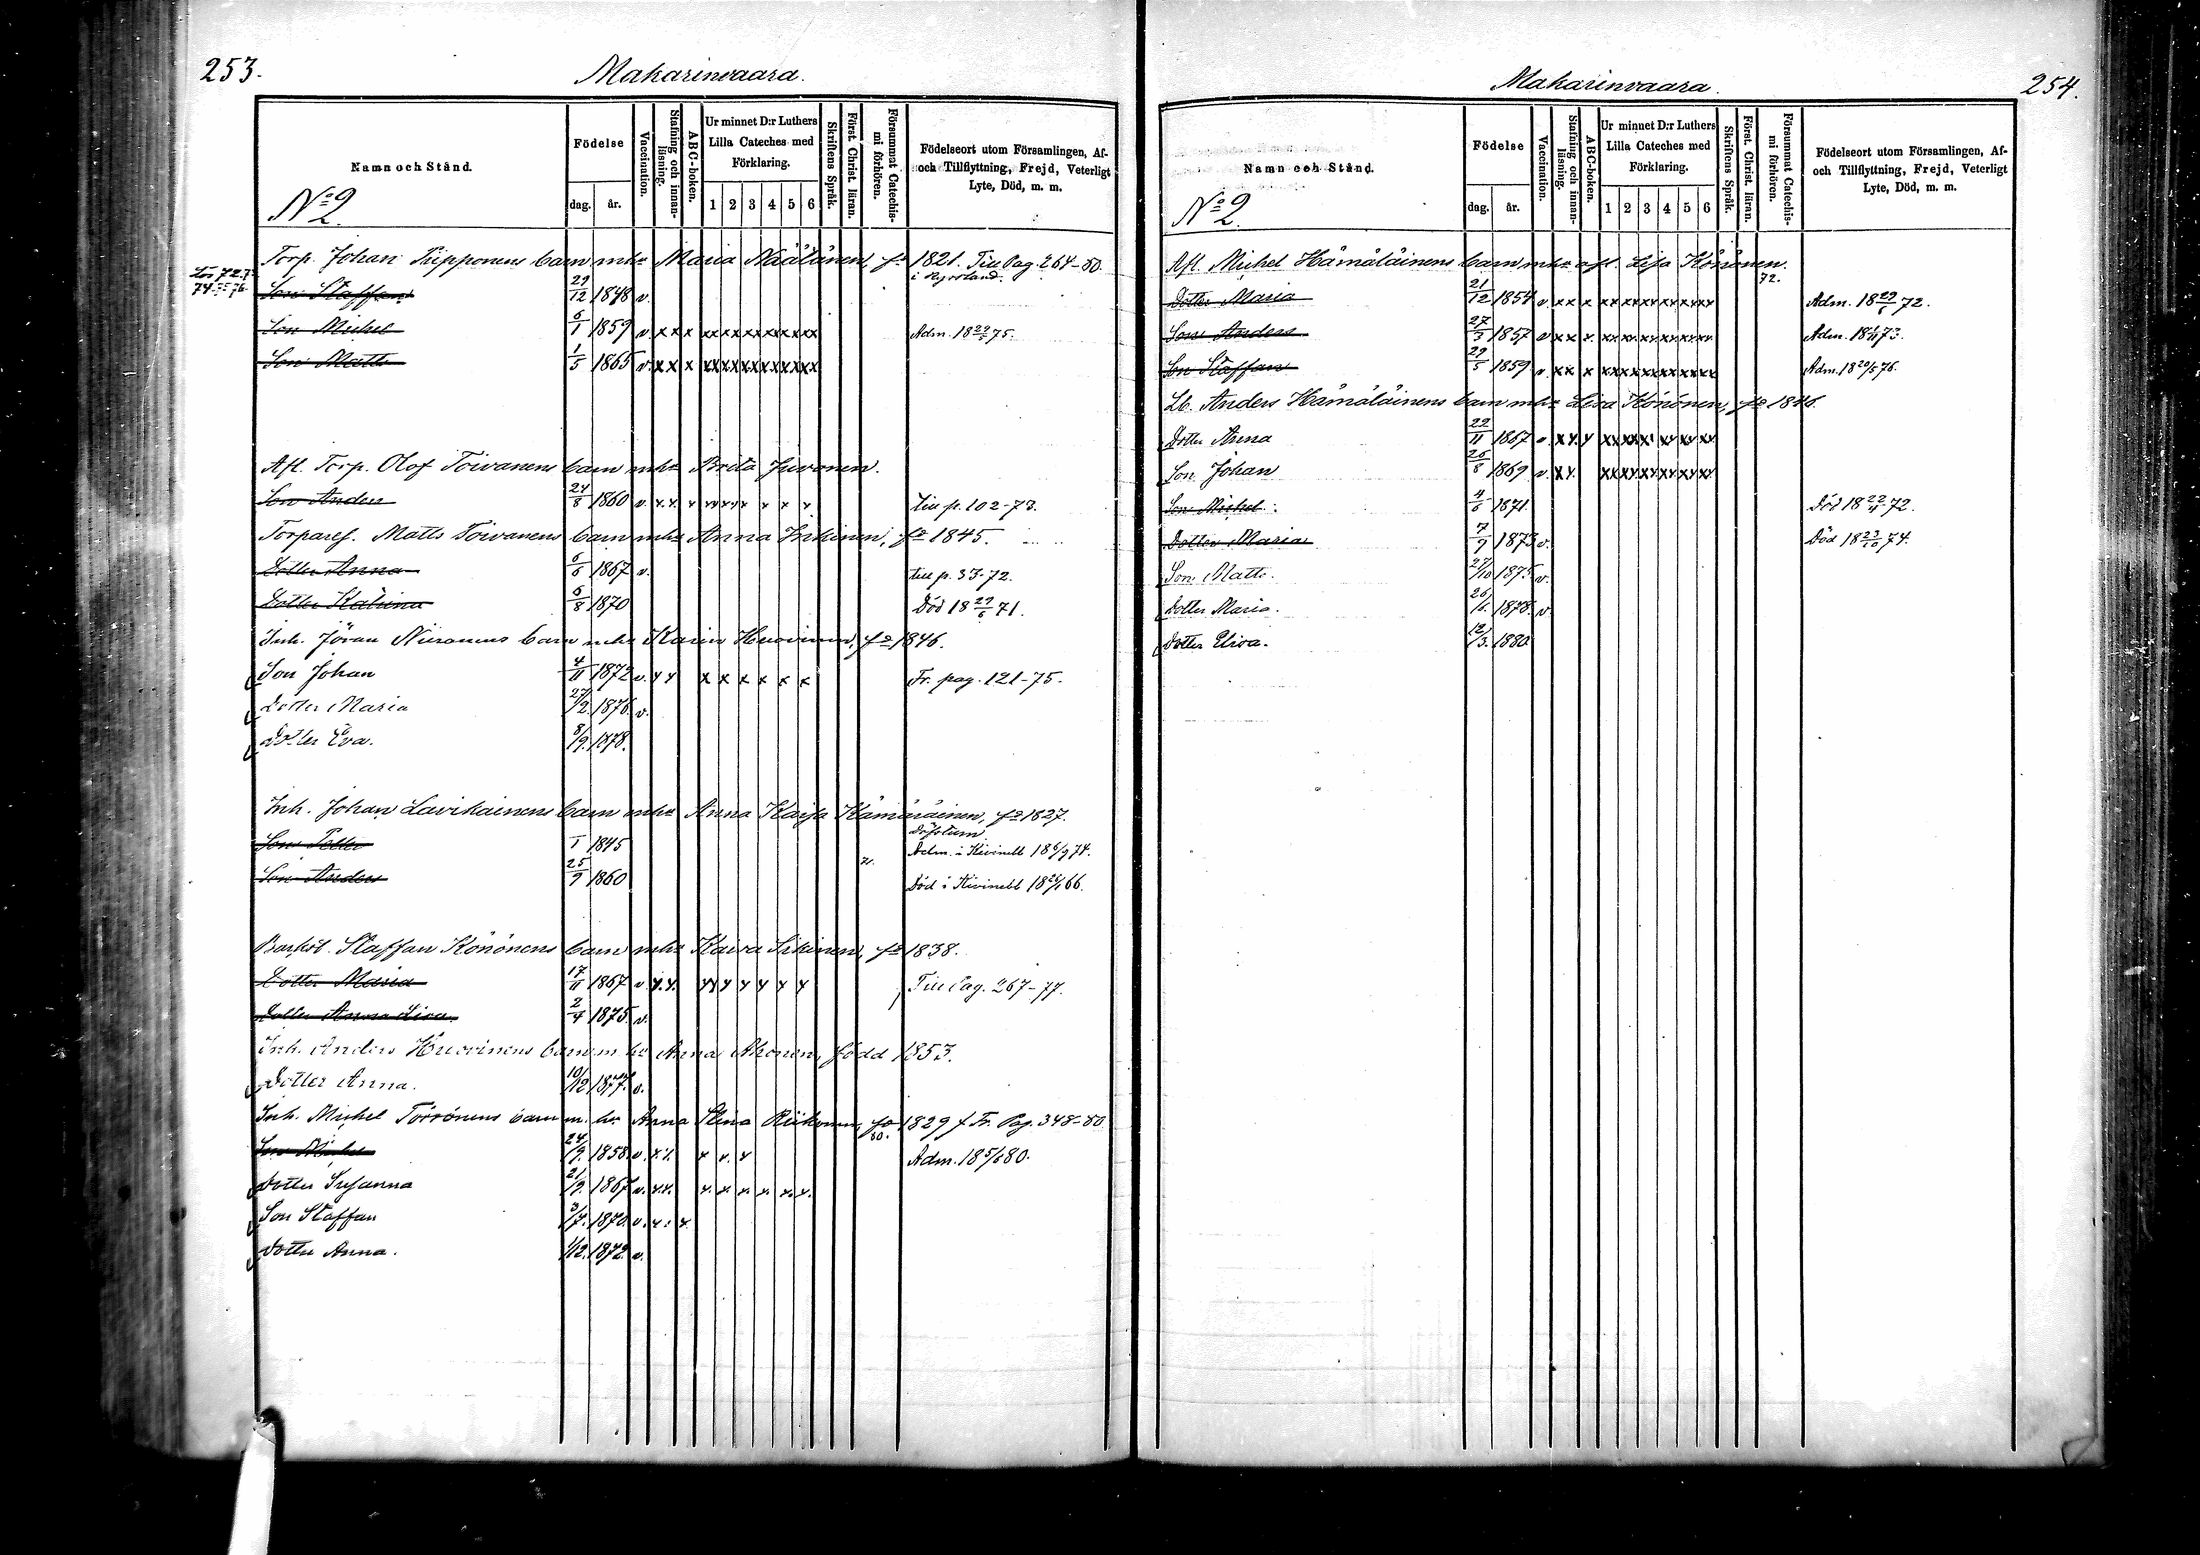 253.
Makarinvaara.
Namn och Stånd.
Födelse
dag. år.
Vaccination.
Stafning och innanläsning.
ABC-boken.
Ur minnet D:r Luthers Lilla Cateches med Förklaring.
1 2 3 4 5 6
Skriftens Språk.
Först. Christ. läran.
Försummat Catechismi förhören.
Födelseort utom Församlingen, Af- och Tillflyttning, Frejd, Veterligt Lyte, Död, m. m.
No 2.
Torp. Johan Kipponens barn mhu Maria Näälänen, fö 1821. Till Pag. 264-80.
i Ryssland.
Son Staffan 29/12 1848 v.
Son Michel 6/1 1859 v x x x xx xx xx xx xx xx Adm. 18 29/5 75.
Son Matts 1/5 1865 v. x x x xx xx xx xx xx xx
Afl. Torp. Olof Toivanens barn mhu Brita Juvonen.
Son Anders 24/8 1860 v. x. x. x xx xx x x x x till p. 102-73.
Torparef. Matts Toivanens barn mhu Anna Irkinen, fö 1845.
Dotter Anna 6/6 1867 v. till p. 33-72.
Dotter Katrina 6/8 1870 Död 18 29/6 71.
Inh. Jöran Niiranens barn mhu Karin Huovinen, fö 1846.
Son Johan 4/11 1872 v. x x x x x x x x Fr. pag. 121-75.
Dotter Maria 27/2. 1876. v.
Dotter Eva. 8/9. 1878.
Inh. Johan Lavikainens barn mhu Anna Kaisa Kämäräinen, fö 1827.
Döfstum
Son Petter /1 1845 Adm. i Kivinebb 18 6/9 74.
Son Anders 25/9 1860 Död i Kivinebb 18 26/1 66.
Staffan Könönens barn mhu Kaisa Irkinen, fö 1838.
Dotter Maria 17/11 1867 v x. x. xx x x x x x Till Pag. 267-77.
Dotter Anna Lisa. 2/4 1875. v.
Inh. Anders Huovinens barn m hu Anna Ahonen, född 1853.
Dotter Anna. 10/12 1877. v.
Inh. Michel Törrönens barn m. hu Anna Stina Riikonen, fö 1829 f Fr. Pag. 348-80.
80.
Son Michel 24/9. 1858. v. x. x. x v. x Adm. 18 5/6 80.
Dotter Susanna 21/9. 1867 v. x x. x. x. x. x. x. x.
Son Staffan 3/7. 1870. v. x. x x.
Dotter Anna. 1/12. 1872. v.
Makarinvaara.
254.
Namn och Stånd.
Födelse
dag. år.
Vaccination.
Stafning och innanläsning.
ABC-boken.
Ur minnet D:r Luthers Lilla Cateches med Förklaring.
1 2 3 4 5 6
Skriftens Språk.
Först. Christ. läran.
Försummat Catechismi förhören.
Födelseort utom Församlingen, Af- och Tillflyttning, Frejd, Veterligt Lyte, Död, m. m.
No 2.
Afl. Michel Hämäläinens barn mhu afl. Lisa Könönen.
72.
Dotter Maria 21/12 1854 v x x x xx xx xx xx xx xx Adm. 18 29/6 72.
Son Anders 27/3 1857 v x x x. xx xx xx xx xx xx Adm. 18 1/11 73.
Son Staffan 29/5 1859 v. x x x xx xx xx xx xx xx Adm. 18 20/5 76.
Lb. Anders Hämäläinens barn mhu Lisa Könönen, fö 1846.
Dotter Anna 22/11 1867 v x x x xx xx xx xx xx xx
Son Johan 26/8 1869 v. x x. xx xx xx xx xx xx
Son Michel. 4/6 1871. Död 18 22/4 72.
Dotter Maria 7/9 1873 v. Död 18 23/10 74.
Son Matts. 27/10 1875. v.
Dotter Maria. 26/6. 1878. v.
Dotter Elisa. 12/3. 1880